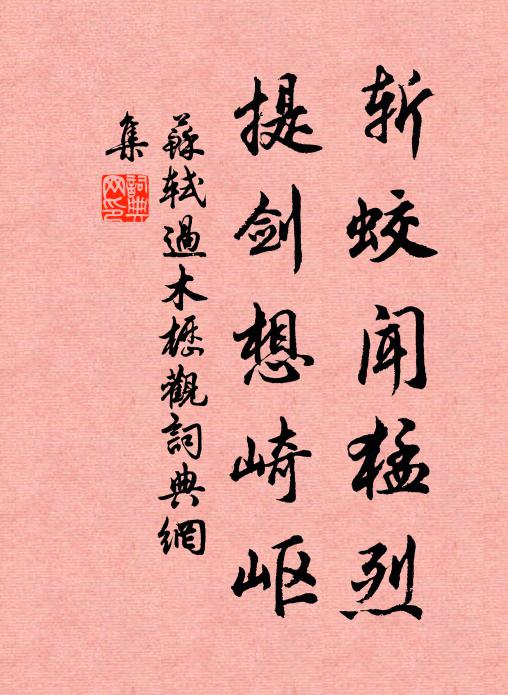 斩蛟闻猛烈
提剑想崎岖
蘇軾過木櫪觀詞典網
集
詞典
网印